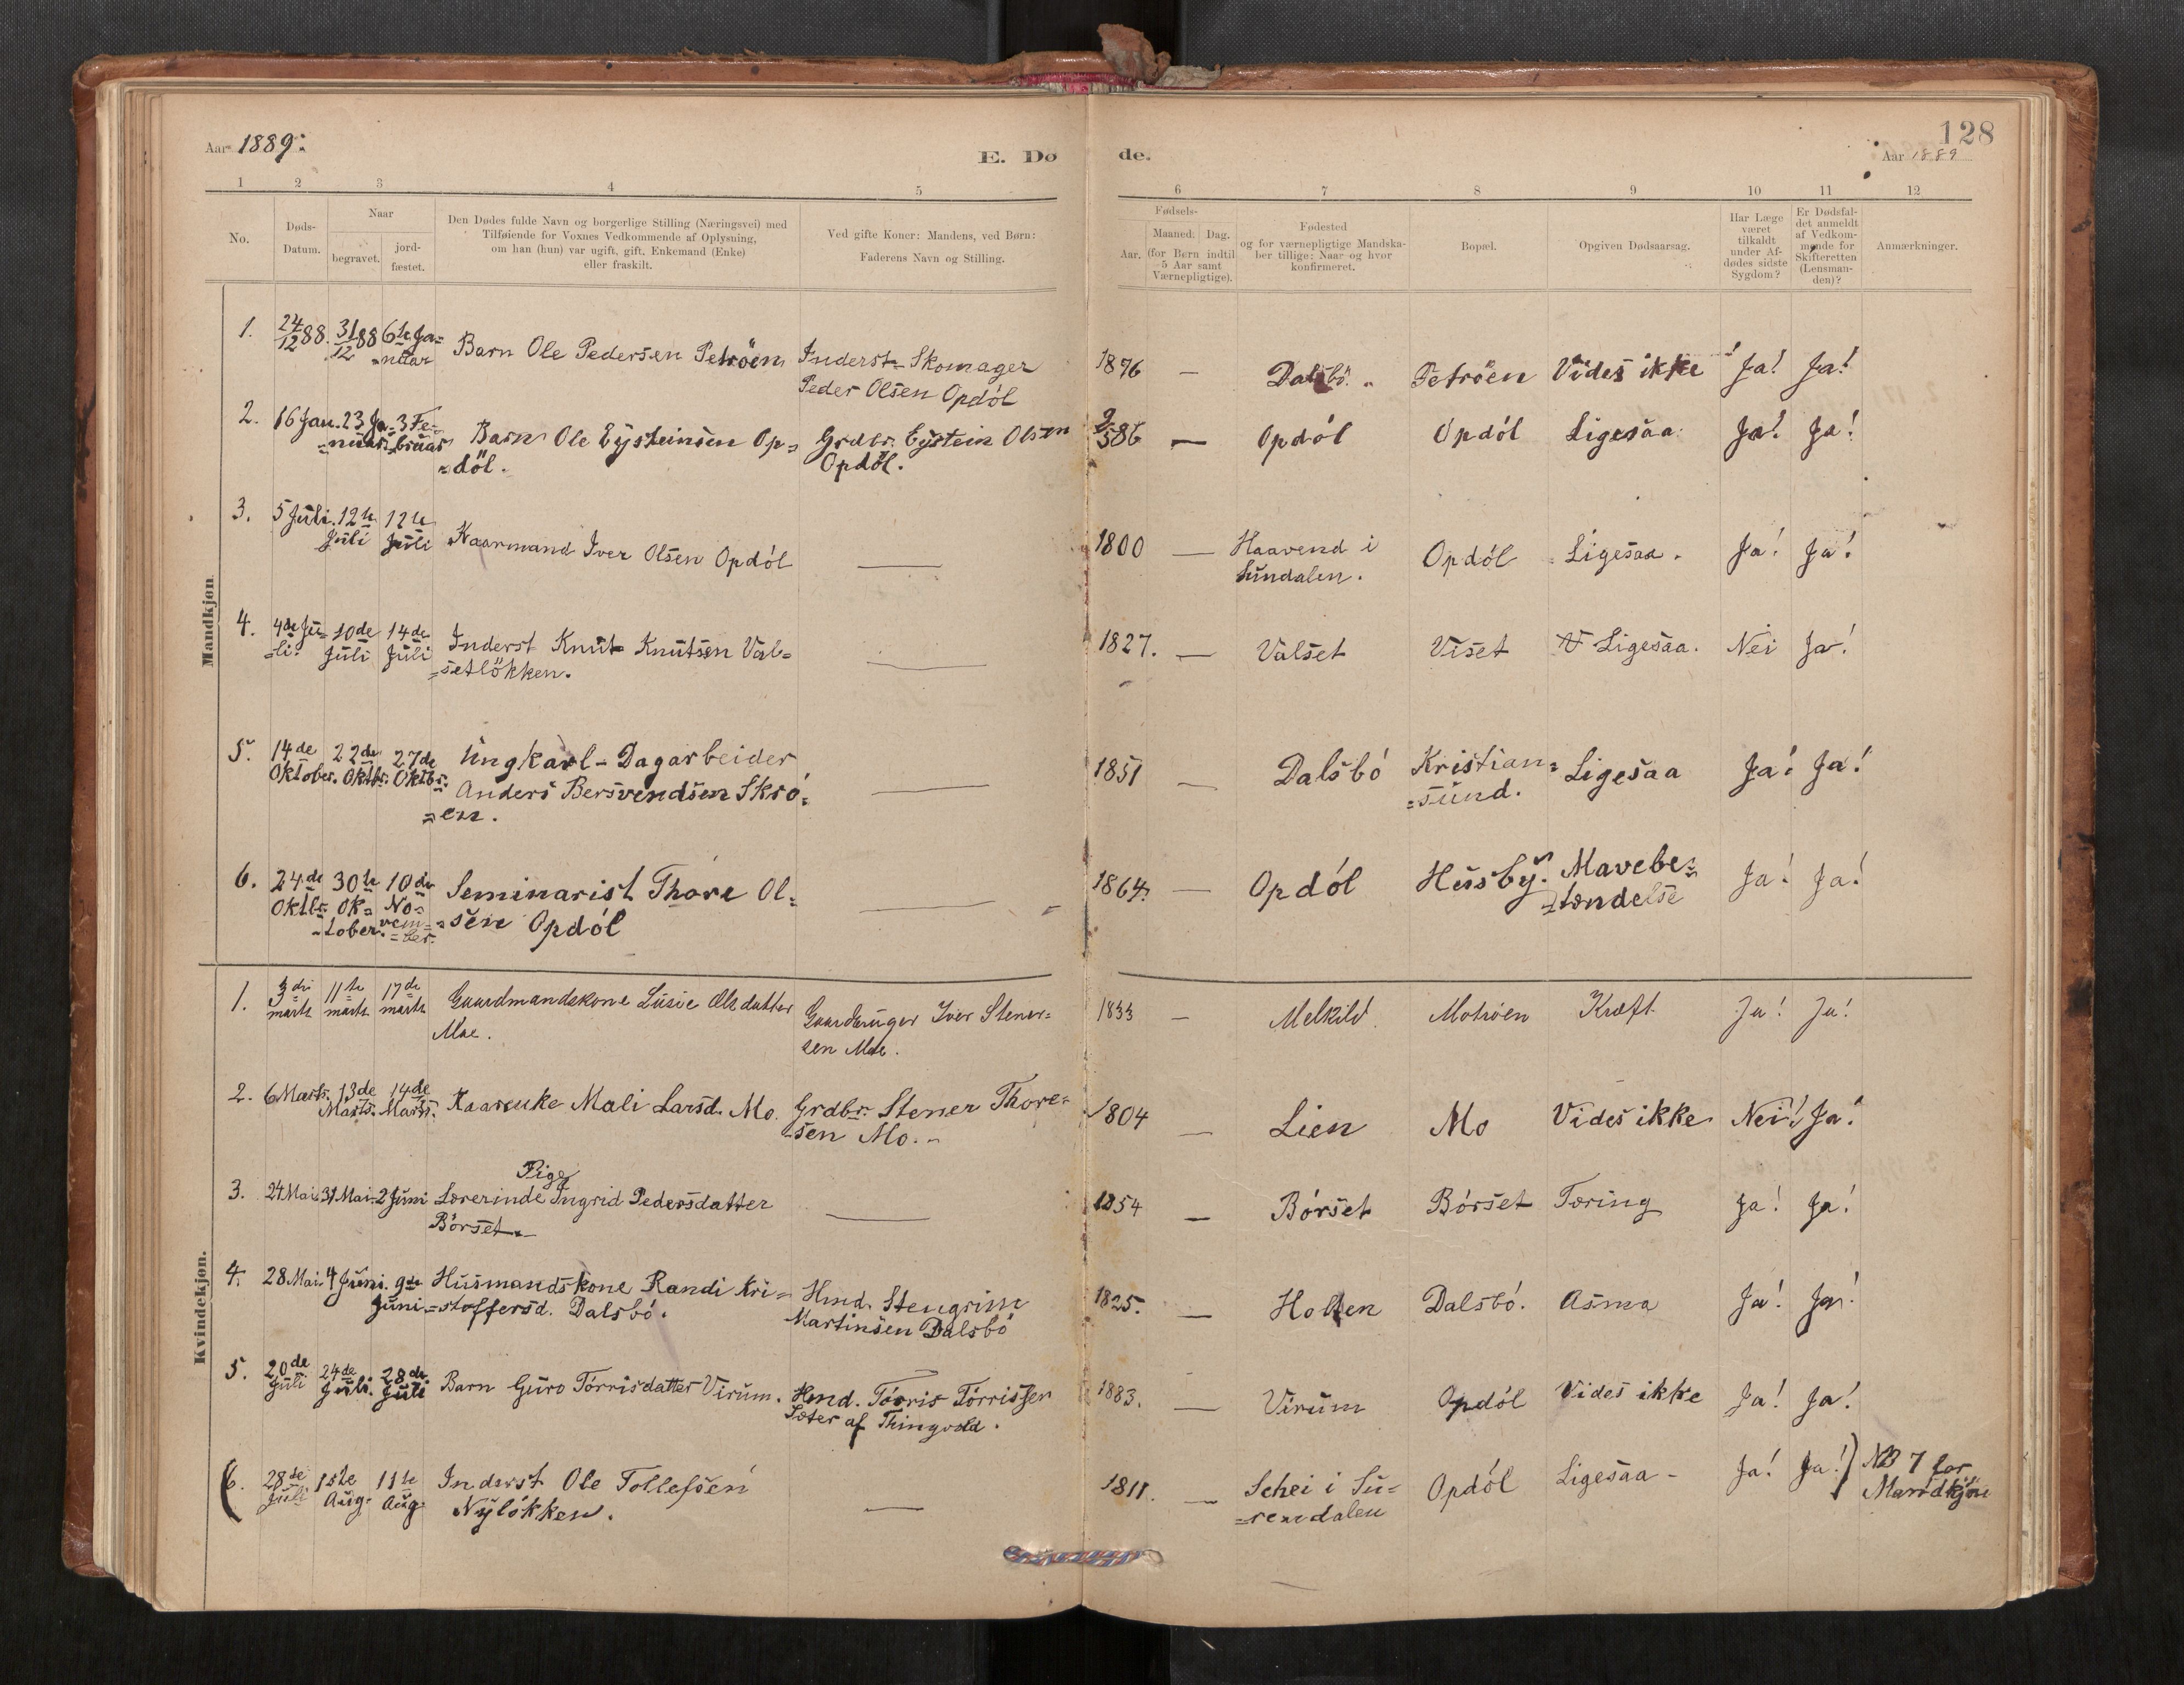 128
Aar 1889.
E. Dø
de.
Aar 1889
1 2 3 4 5 6 7 8 9 10 11 12
No.
Døds-
Datum.
Naar
begravet.
jord-
fæstet.
Den Dødes fulde Navn og borgerlige Stilling (Næringsvei) med
Tilføiende for Voxnes Vedkommende af Oplysning,
om han (hun) var ugift, gift, Enkemand (Enke)
eller fraskilt.
Ved gifte Koner: Mandens, ved Børn:
Faderens Navn og Stilling.
Fødsels-
Aar.
Maaned.
Dag.
(for Børn indtil
5 Aar samt
Værnepligtige).
Fødested
og for værnepligtige Mandska-
ber tillige: Naar og hvor
konfirmeret.
Bopæl.
Opgiven Dødsaarsag.
Har Læge
været
tilkaldt
under Af-
dødes sidste
Sygdom?
Er Dødsfal-
det anmeldt
af Vedkom-
mende for
Skifteretten
(Lensman-
den)?
Anmærkninger.
Mandkjøn
1. 24/12 88. 31/12 88 6te Ja=
=nuar
Barn Ole Pedersen Petröen
Inderst-Skomager
Peder Olsen Opdöl
1876 — Dalsbö. Petröen Vides ikke Ja! Ja!
2. 16 Jan. 23 Ja= 3 Fe=
=nuar. bruar
Barn Ole Eysteinsen Op=
=döl.
Grdbr. Eystein Olsen
Opdöl.
9/5 86 — Opdöl Opdöl Ligesaa. Ja! Ja!
3. 5 Juli. 12te 12te
Juli Juli
Kaarmand Iver Olsen Opdöl —
1800 — Haavend i
Sundalen.
Opdöl Ligesaa. Ja! Ja!
4. 4de Ju= 10de 14de
=li. Juli Juli
Inderst Knut Knutsen Val=
=setlökken. —
1827. — Valset Viset Ligesaa. Nei Ja!
5. 14de 22de 27de
Oktober. Oktbr. Oktbr.
Ungkarl-Dagarbeider
Anders Bersvendsen Skrö=
=en. —
1851 — Dalsbö Kristian=
=sund.
Ligesaa Ja! Ja!
6. 24de 30te 10de
Oktbr. Ok= No=
=tober. vem=
=ber.
Seminarist Thore Ol=
=sen Opdöl —
1864. — Opdöl Husby. Mavebe=
=tændelse
Ja! Ja!
Kvindekjøn.
1. 3die 11te 17de
marts marts marts
Gaardmandskone Lusie Olsdatter
Moe.
Gaardbruger Iver Stener=
sen Moe.
1833 — Melkild. Motröen Kræft. Ja! Ja!
2. 6 Marts. 13de 14de
Marts. Marts.
Kaarenke Mali Larsd. Mo.
Grdbr. Stener Thore=
=sen Mo.
1804 — Lien Mo Vides ikke Nei! Ja!
3. 24 Mai 31 Mai 2 Juni
Pige
Lærerinde Ingrid Pedersdatter
Börset. —
1854 — Börset Börset Tæring Ja! Ja!
4. 28 Mai. 4 Juni. 9de
Juni
Husmandskone Randi Kri=
=stoffersd. Dalsbö.
Hmd. Stengrim
Martinsen Dalsbö
1825. — Holten Dalsbö. Asma Ja! Ja!
5. 20de 24de 28de
Juli Juli. Juli
Barn Guro Törrisdatter Virum.
Hmd. Törris Törrissen
Sæter af Thingvold.
1883. — Virum Opdöl Vides ikke Ja! Ja!
(6. 28de 1ste 11te
Juli Aug. Aug.
Inderst Ole Tollefsen
Nylökken. —
1811. — Schei i Su=
=rendalen
Opdöl Ligesaa - Ja! Ja!)
NB 7 for
Mandkjön